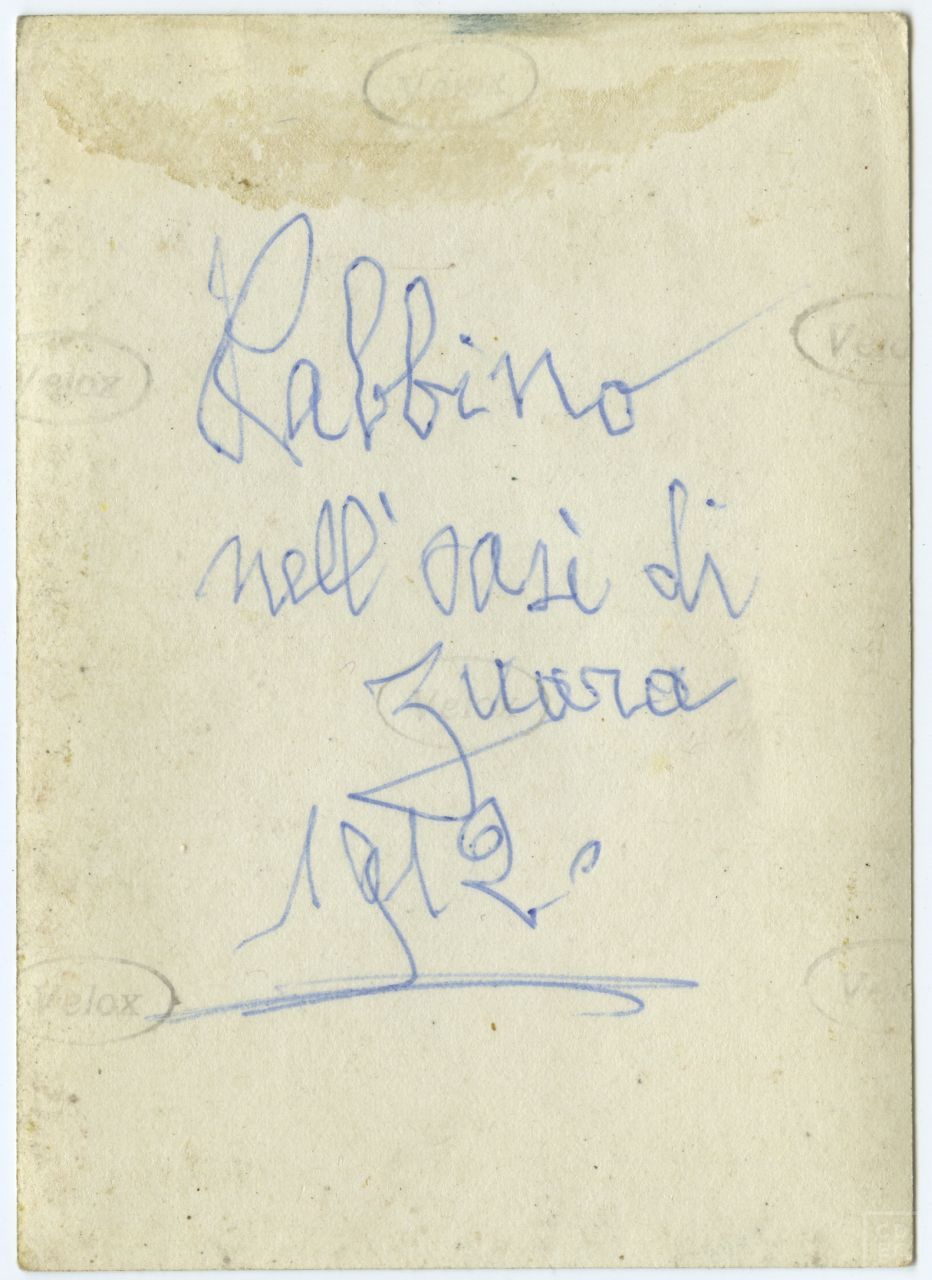 Velox
Rabbino
Velox
Velox
nell'oasi di
Velox
Zuara
1912.
Velox